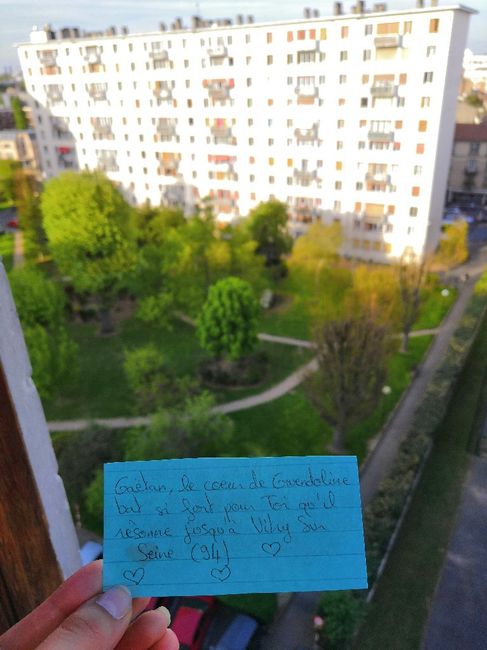 Gaëtan, le coeur de Gwendoline
bat si fort pour Toi qu'il
résonne jusqu'à Vitry Sur
Seine (94) ♡
♡ ♡